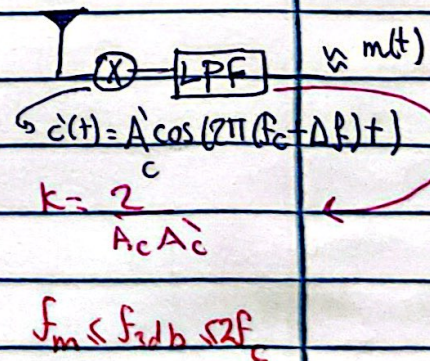 X LPF ≈ m(t)
c'(t) = A'c cos(2π(fc+Δf)t)
K = 2 / Ac A'c
fm ≤ f3db ≤ 2fc